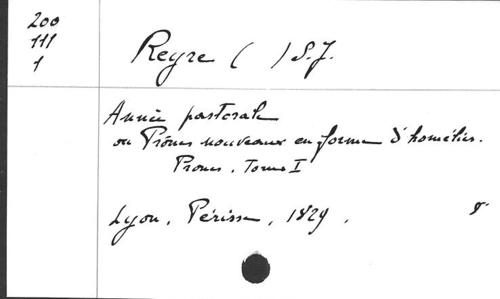 200
111
1
Reyre ( ) S.J.
Année pastorale
ou Prônes nouveaux en forme d'homélies.
Prones. Tome I
Lyon, Périsse, 1829.
8°